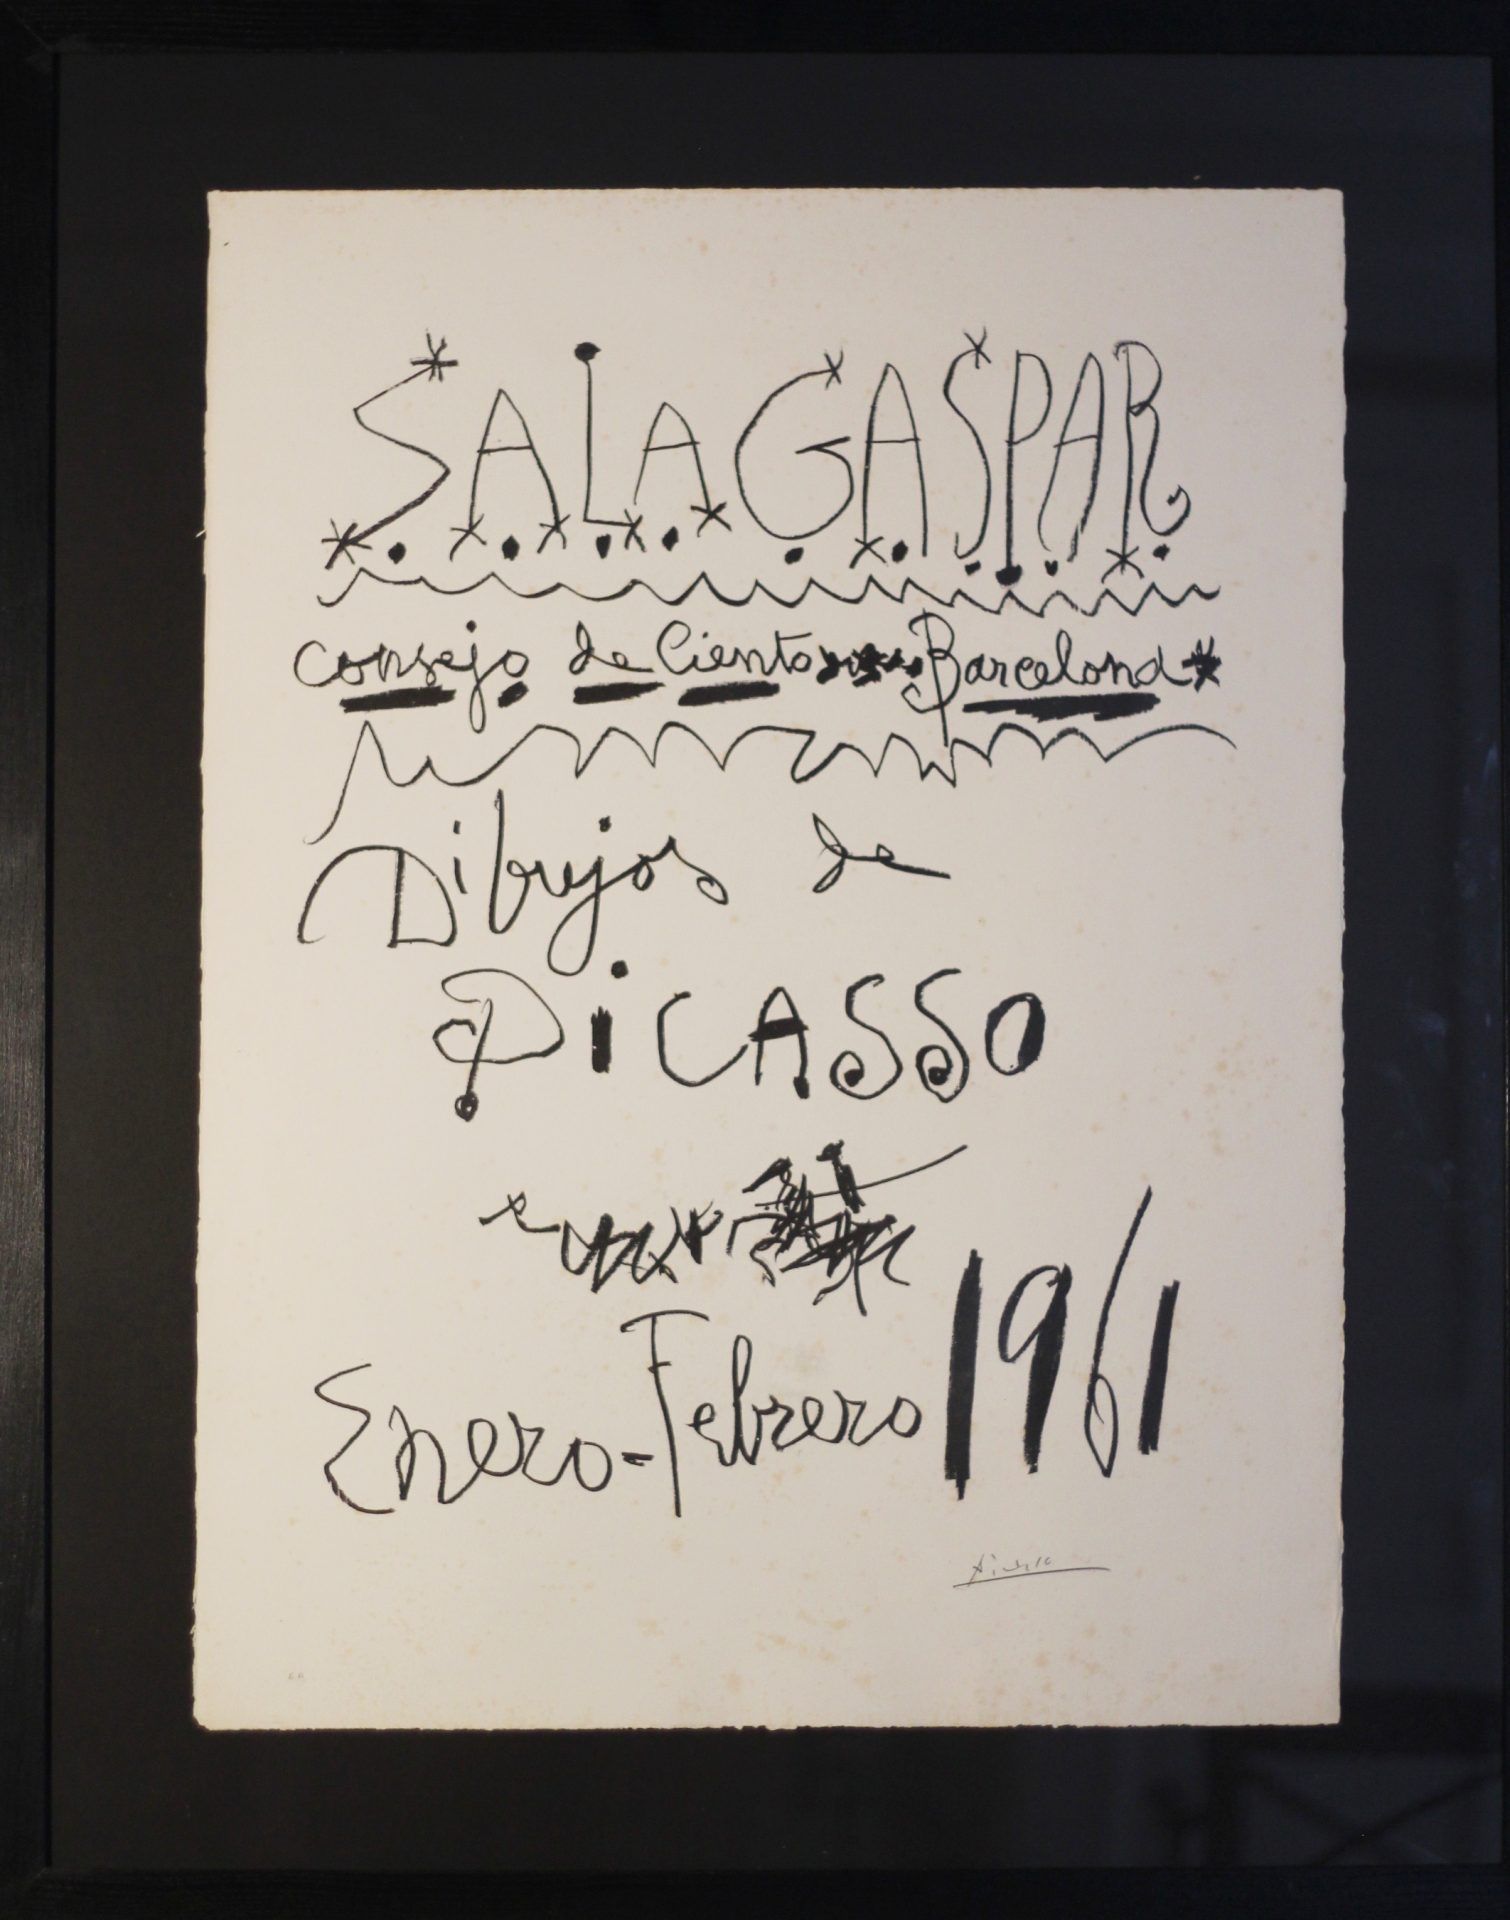 SALA GASPAR
Consejo de Ciento Barcelona
Dibujos de
PiCASSO
Enero-Febrero 1961
Picasso